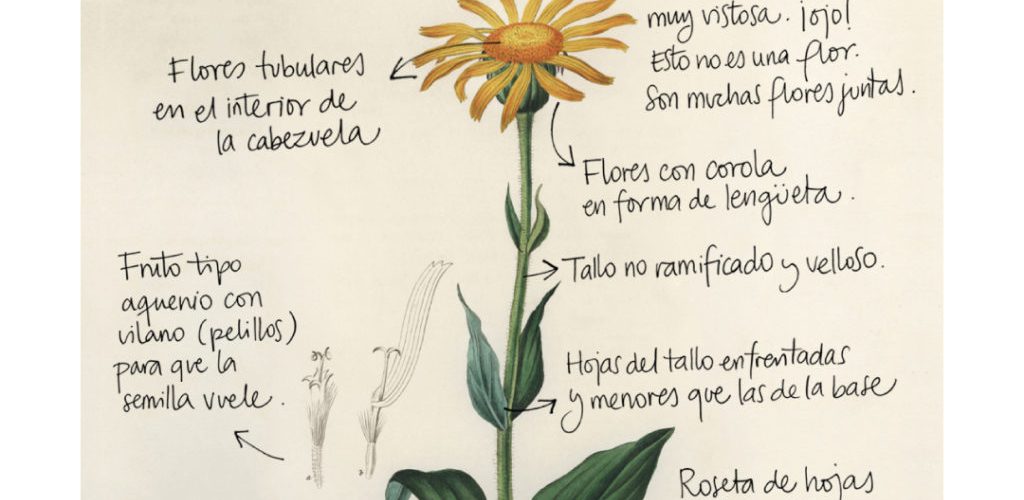 muy vistosa. ¡ojo!
Esto no es una flor.
Son muchas flores juntas.
Flores tubulares
en el interior de
la cabezuela
Flores con corola
en forma de lengüeta.
Tallo no ramificado y velloso.
Fruto tipo
aquenio con
vilano (pelillos)
para que la
semilla vuele.
Hojas del tallo enfrentadas
y menores que las de la base
Roseta de hojas